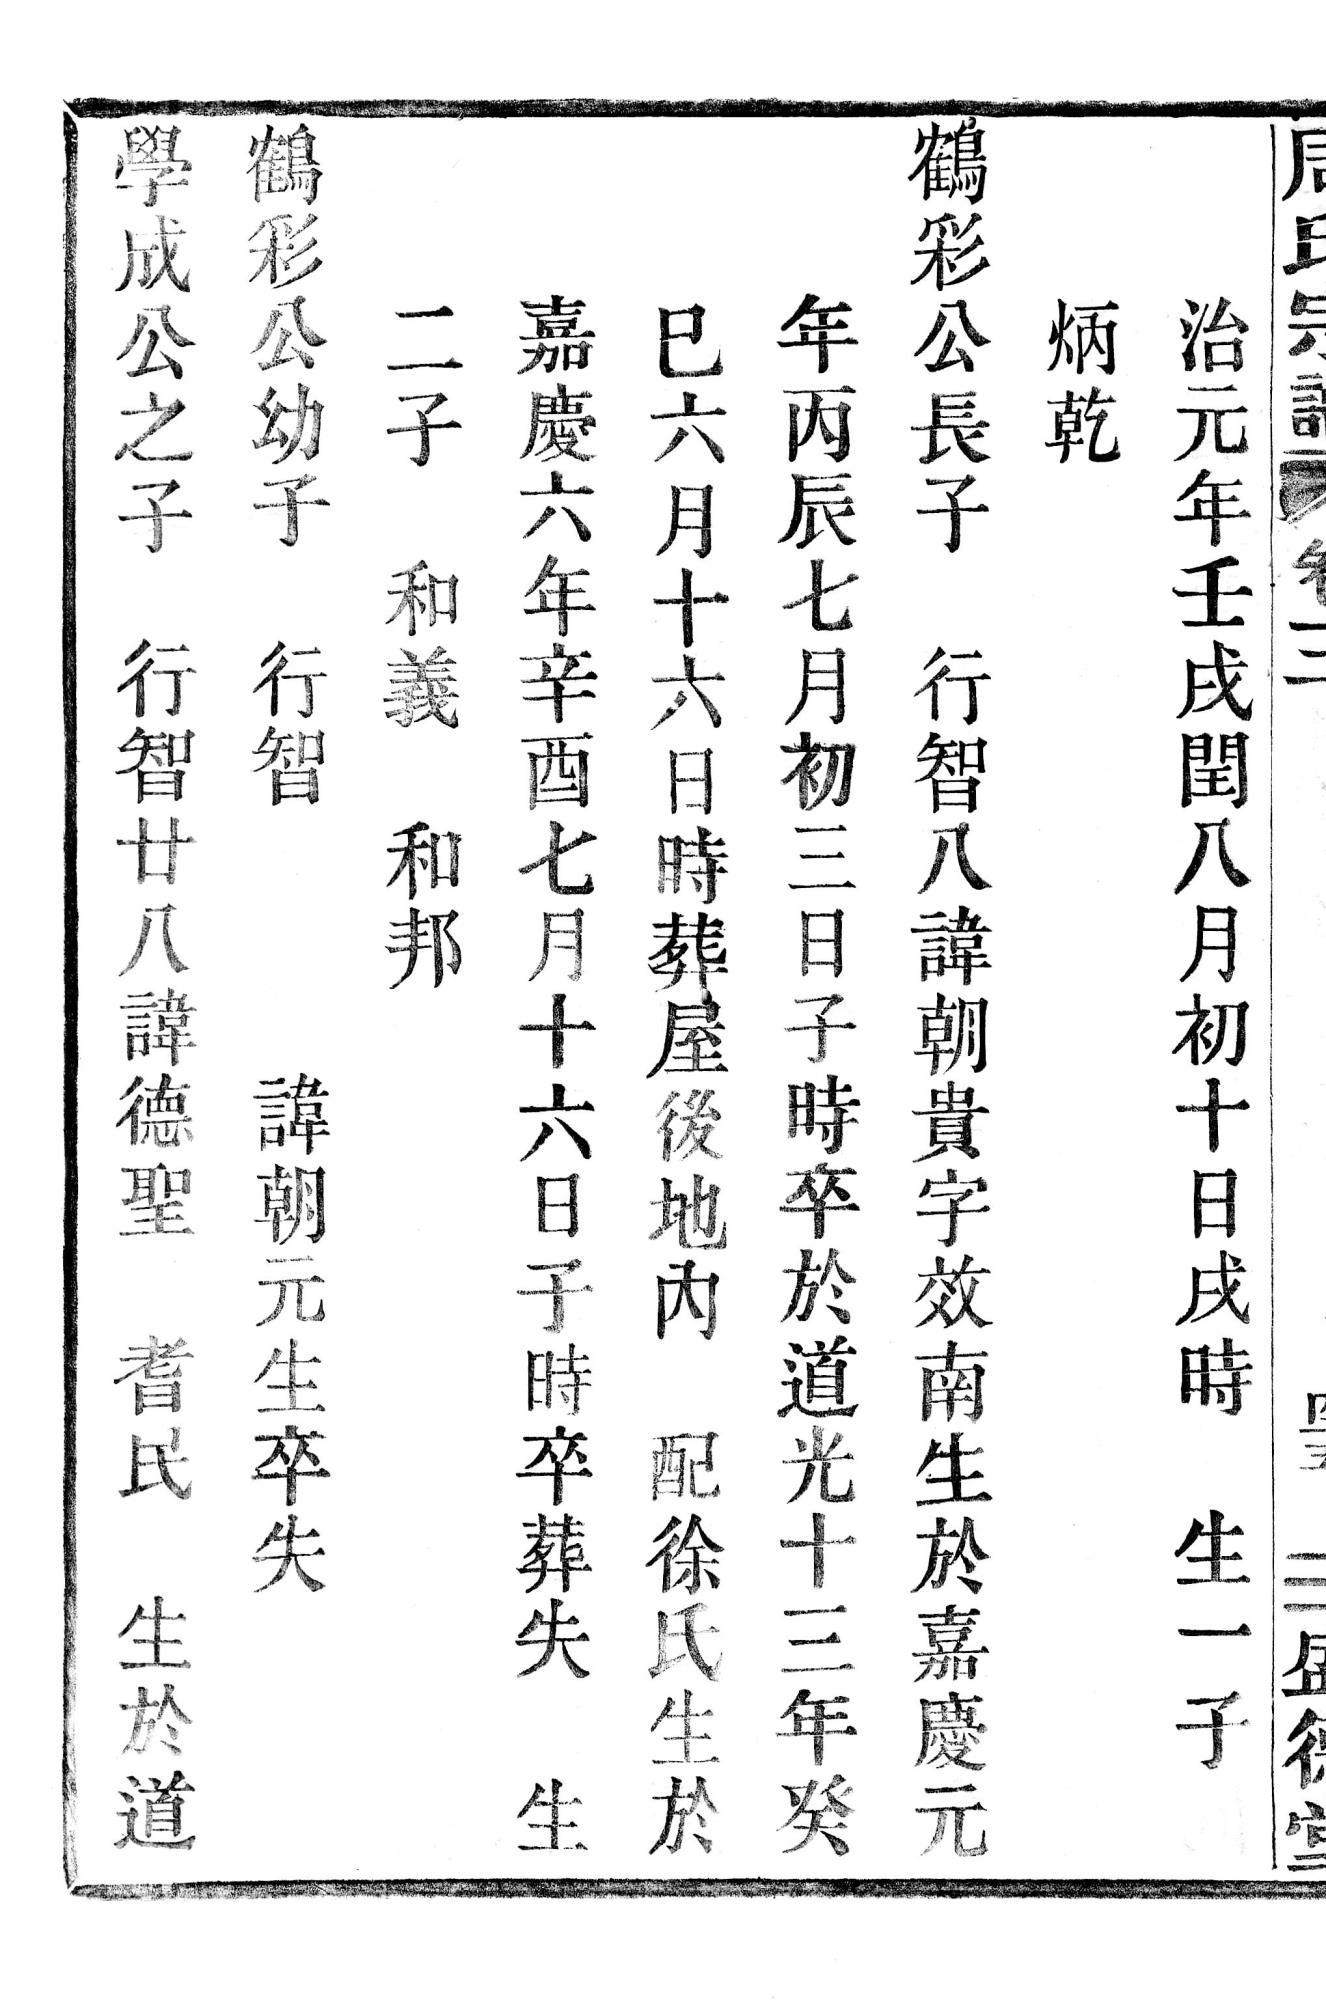 周氏宗譜 卷三 盛德堂
治元年壬戌閏八月初十日戌時 生一子
炳乾
鶴彩公長子 行智八諱朝貴字效南生於嘉慶元
年丙辰七月初三日子時卒於道光十三年癸
巳六月十六日時葬屋後地內 配徐氏生於
嘉慶六年辛酉七月十六日子時卒葬失 生
二子 和義 和邦
鶴彩公幼子 行智 諱朝元生卒失
學成公之子 行智廿八諱德聖 耆民 生於道